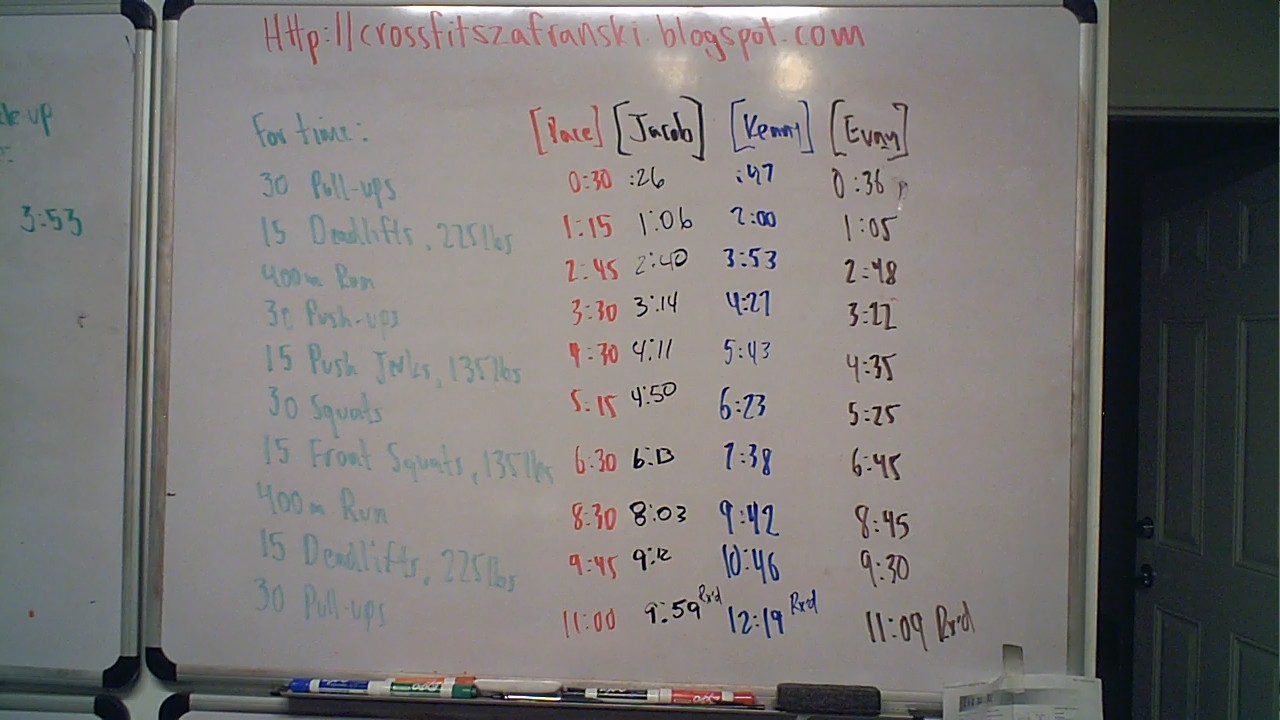 de up
3:53
Http://crossfitszafranski.blogspot.com
For time: [Pace] [Jacob] [Kenny] [Evan]
30 Pull-ups 0:30 :26 :47 0:36
15 Deadlifts, 225lbs 1:15 1:06 2:00 1:05
400m Run 2:45 2:40 3:53 2:48
30 Push-ups 3:30 3:14 4:27 3:22
15 Push Jerks, 135lbs 4:30 4:11 5:43 4:35
30 Squats 5:15 4:50 6:23 5:25
15 Front Squats, 135lbs 6:30 6:13 7:38 6:45
400m Run 8:30 8:03 9:42 8:45
15 Deadlifts, 225lbs 9:45 9:12 10:46 9:30
30 Pull-ups 11:00 9:59 Rx'd 12:19 Rx'd 11:09 Rx'd